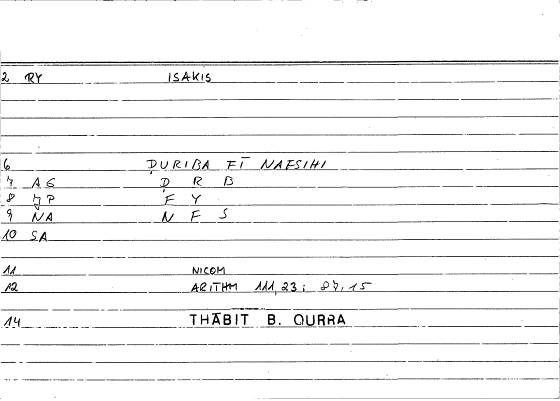 2 RY ISAKIS
6 ḌURIBA FĪ NAFSIHI
7 AS Ḍ R B
8 JP F Y
9 NA N F S
10 SA
11 NICOM
12 ARITHM 111,23; 87,15
14 THĀBIT B. QURRA